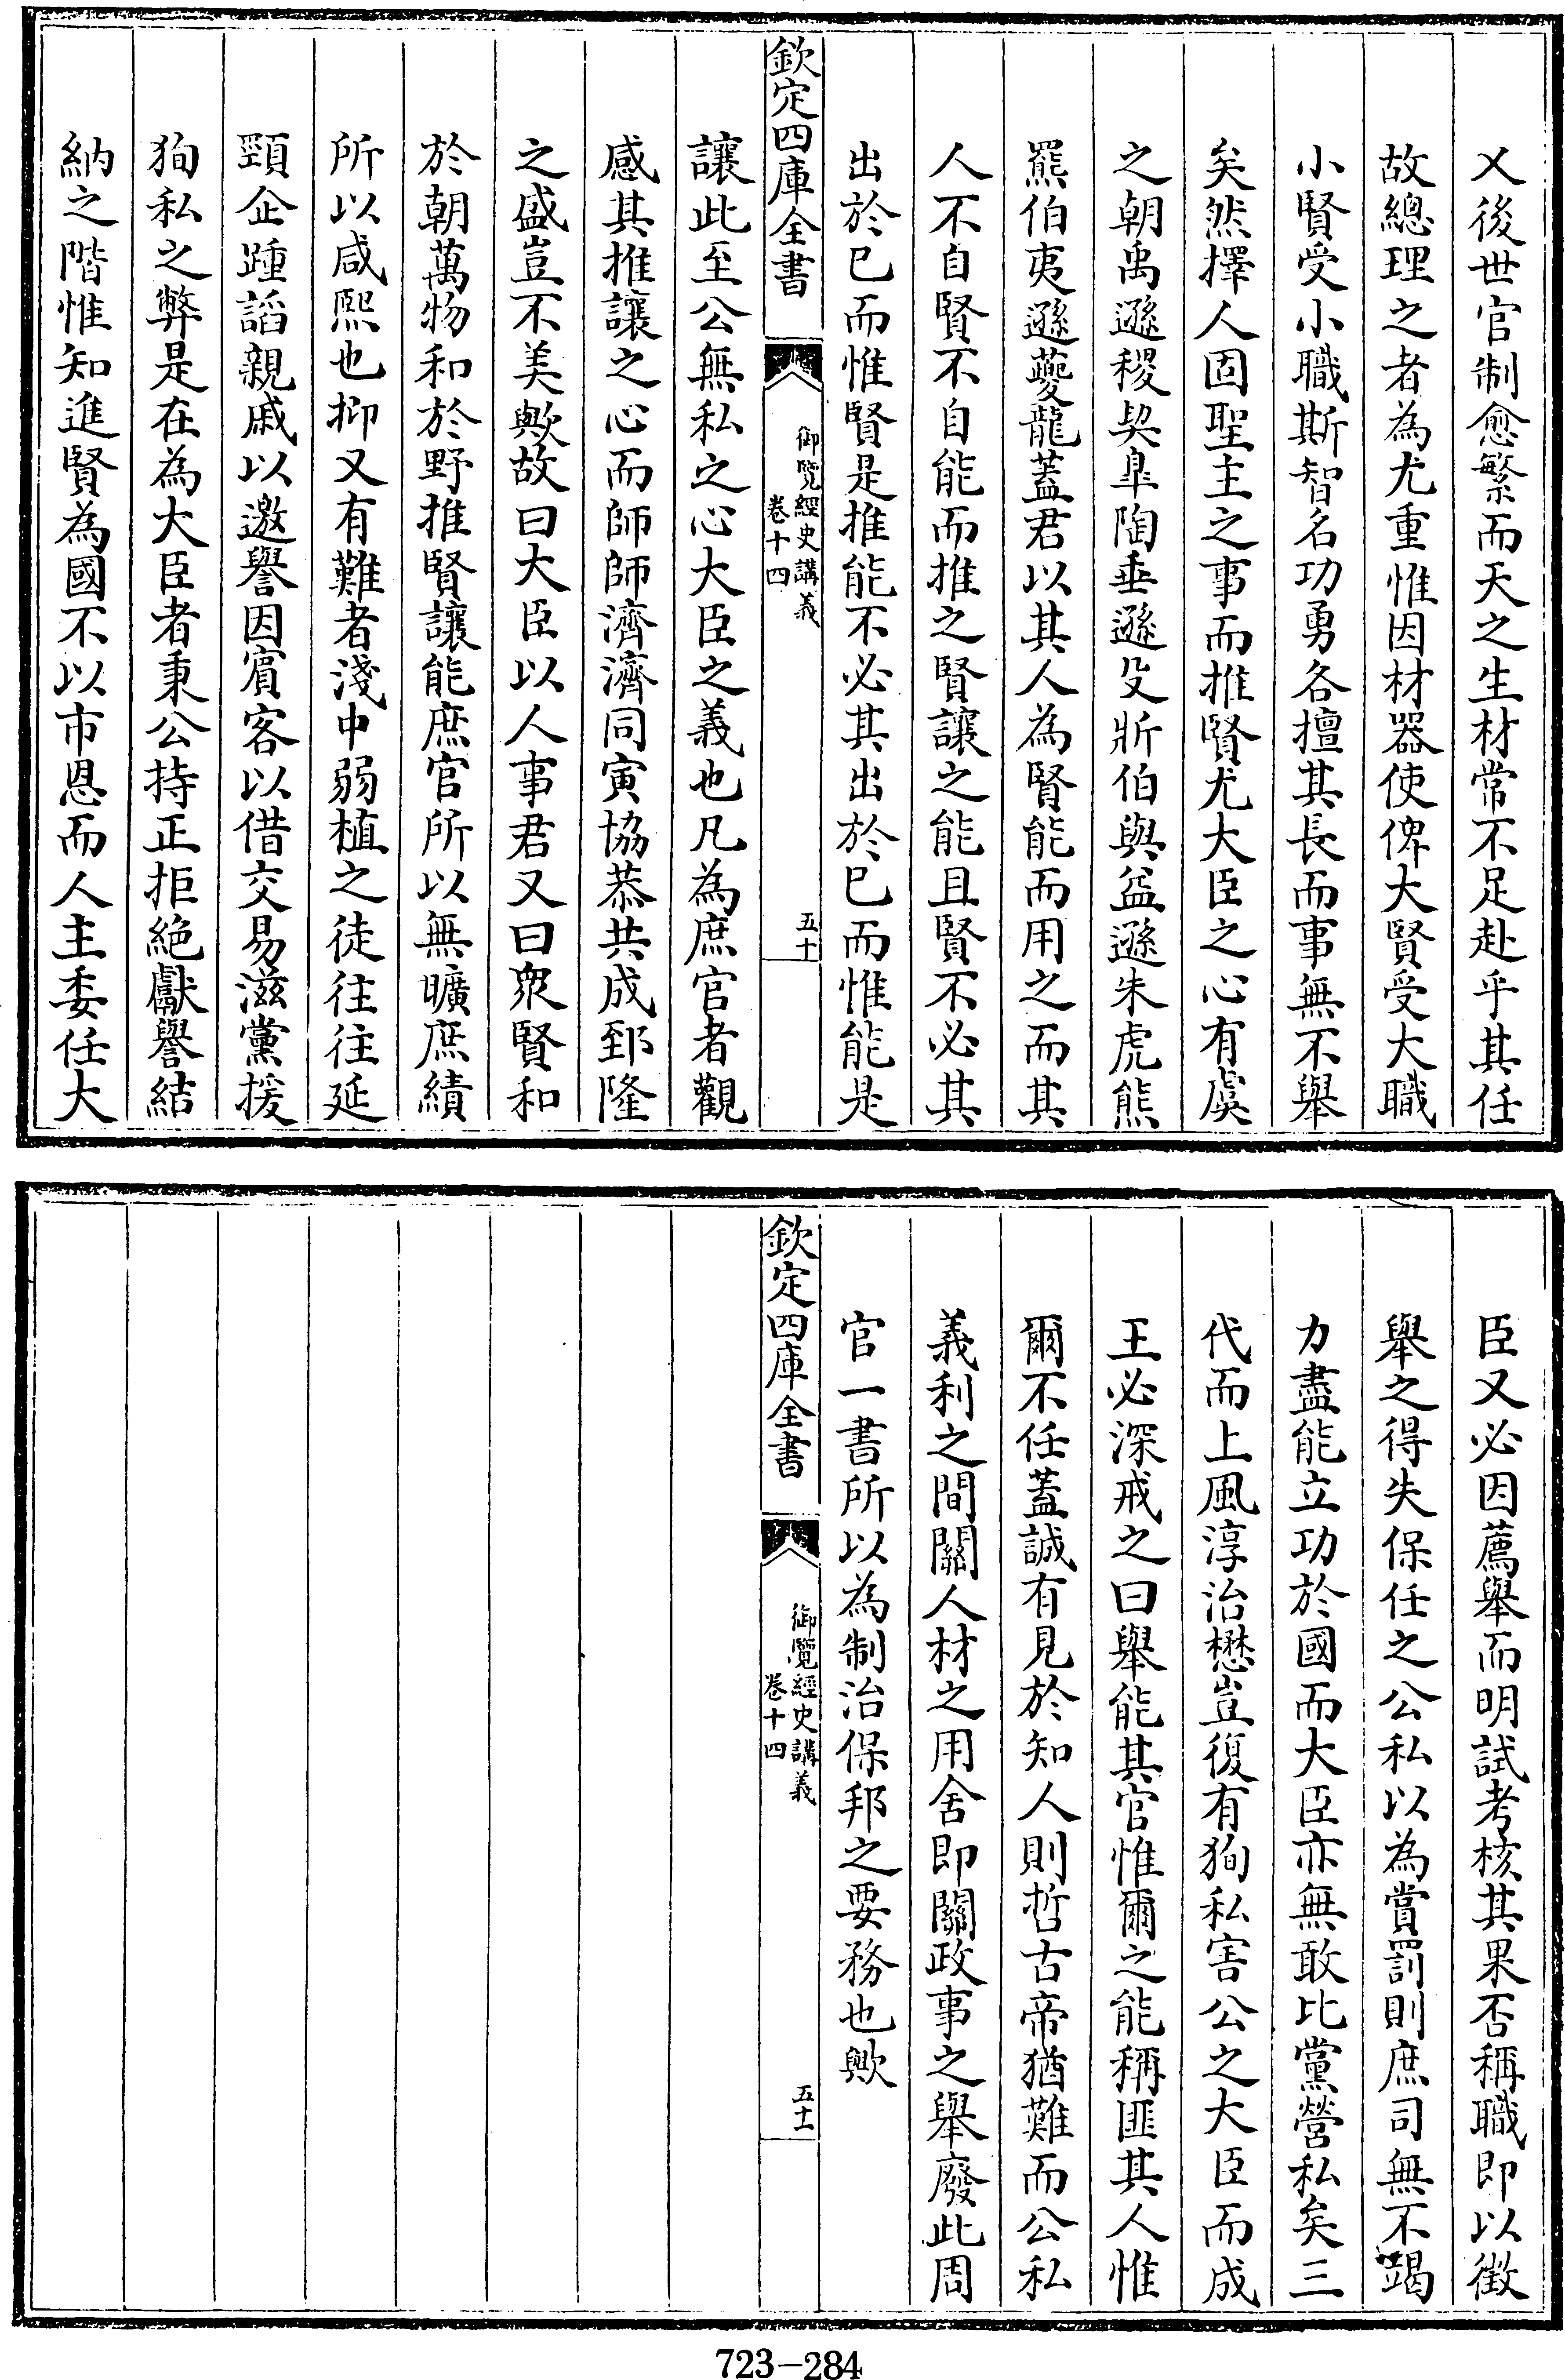 乂後世官制愈繁而天之生材常不足赴乎其任
故總理之者為尤重惟因材器使俾大賢受大職
小賢受小職斯智名功勇各擅其長而事無不舉
矣然擇人固聖主之事而推賢尤大臣之心有虞
之朝禹遜稷契臯陶垂遜殳斨伯與益遜朱虎熊
羆伯夷遜夔龍蓋君以其人為賢能而用之而其
人不自賢不自能而推之賢讓之能且賢不必其
出於已而惟賢是推能不必其出於已而惟能是
欽定四庫全書
御覽經史講義
卷十四
五十
讓此至公無私之心大臣之義也凡為庶官者觀
感其推讓之心而師師濟濟同寅協恭共成郅隆
之盛豈不美歟故曰大臣以人事君又曰眾賢和
於朝萬物和於野推賢讓能庶官所以無曠庶績
所以咸熙也抑又有難者淺中弱植之徒往往延
頸企踵謟親戚以邀譽因賓客以借交易滋黨援
狥私之弊是在為大臣者秉公持正拒絕獻譽結
納之階惟知進賢為國不以市恩而人主委任大
臣又必因薦舉而明試考核其果否稱職即以徵
舉之得失保任之公私以為賞罰則庶司無不竭
力盡能立功於國而大臣亦無敢比黨營私矣三
代而上風淳治懋豈復有狥私害公之大臣而成
王必深戒之曰舉能其官惟爾之能稱匪其人惟
爾不任蓋誠有見於知人則哲古帝猶難而公私
義利之間關人材之用舍即關政事之舉廢此周
官一書所以為制治保邦之要務也歟
欽定四庫全書
御覽經史講義
卷十四
五十一
723-284